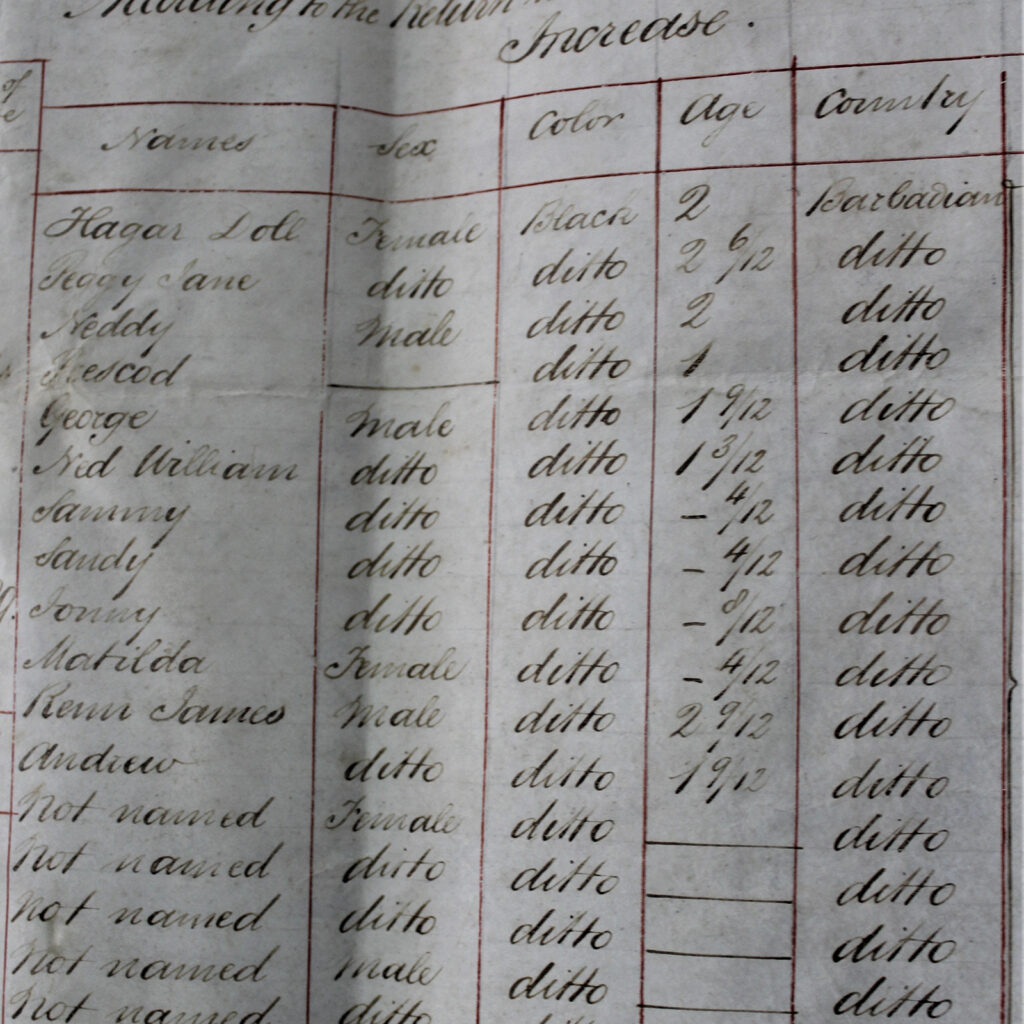 According to the Return
Increase.
of
Names Sex Color Age Country
Hagar Doll Female Black 2 Barbadian
Peggy Jane ditto ditto 2 6/12 ditto
Neddy Male ditto 2 ditto
Prescod ditto 1 ditto
George Male ditto 1 9/12 ditto
Ned William ditto ditto 1 3/12 ditto
Sammy ditto ditto – 4/12 ditto
Sandy ditto ditto – 4/12 ditto
Tommy ditto ditto – 8/12 ditto
Matilda Female ditto – 4/12 ditto
James Male ditto 2 9/12 ditto
Andrew ditto ditto 1 9/12 ditto
Not named Female ditto ditto
Not named ditto ditto ditto
Not named ditto ditto ditto
Not named Male ditto ditto
Not named ditto